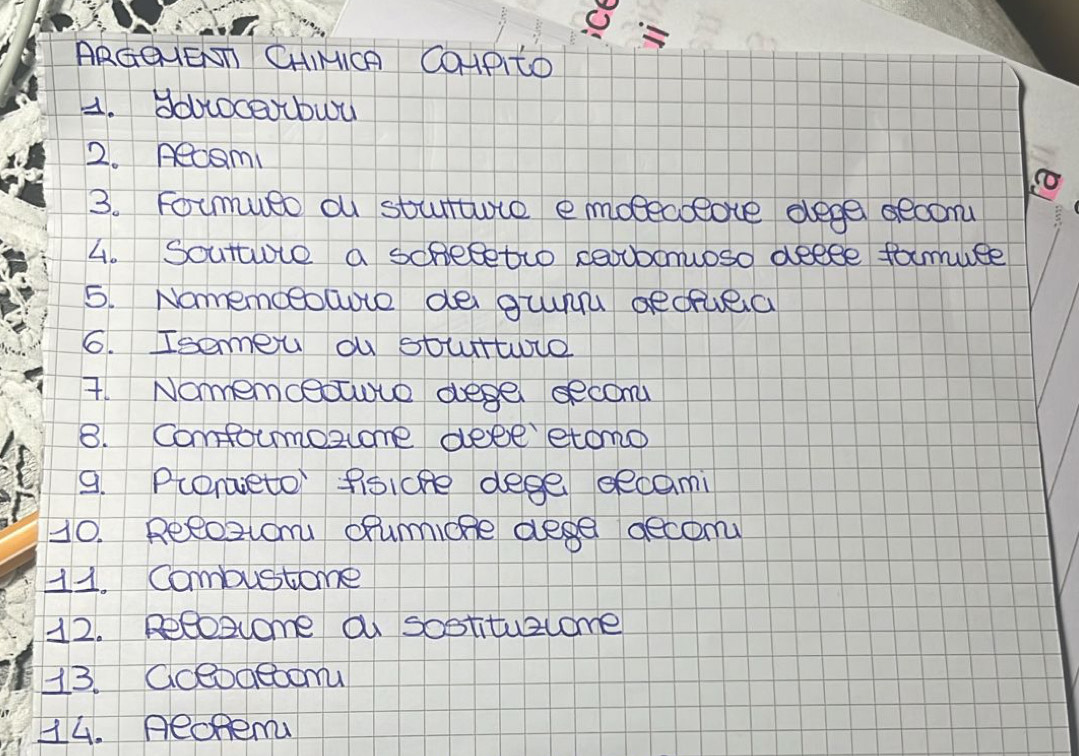 ARGOMENTI CHIMICA COMPITO
1. Idrocarburi
2. Alcani
3. Formula di struttura e molecolare degli alcani
4. Scrittura a scheletro carbonioso delle formule
5. Nomenclatura dei gruppi alchilici
6. Isomeri di struttura
7. Nomenclatura degli alcani
8. Conformazione dell'etano
9. Proprietà fisiche degli alcani
10. Reazioni chimiche degli alcani
11. Combustione
12. Reazione di sostituzione
13. Cicloalcani
14. Alcheni
ce
li
ra